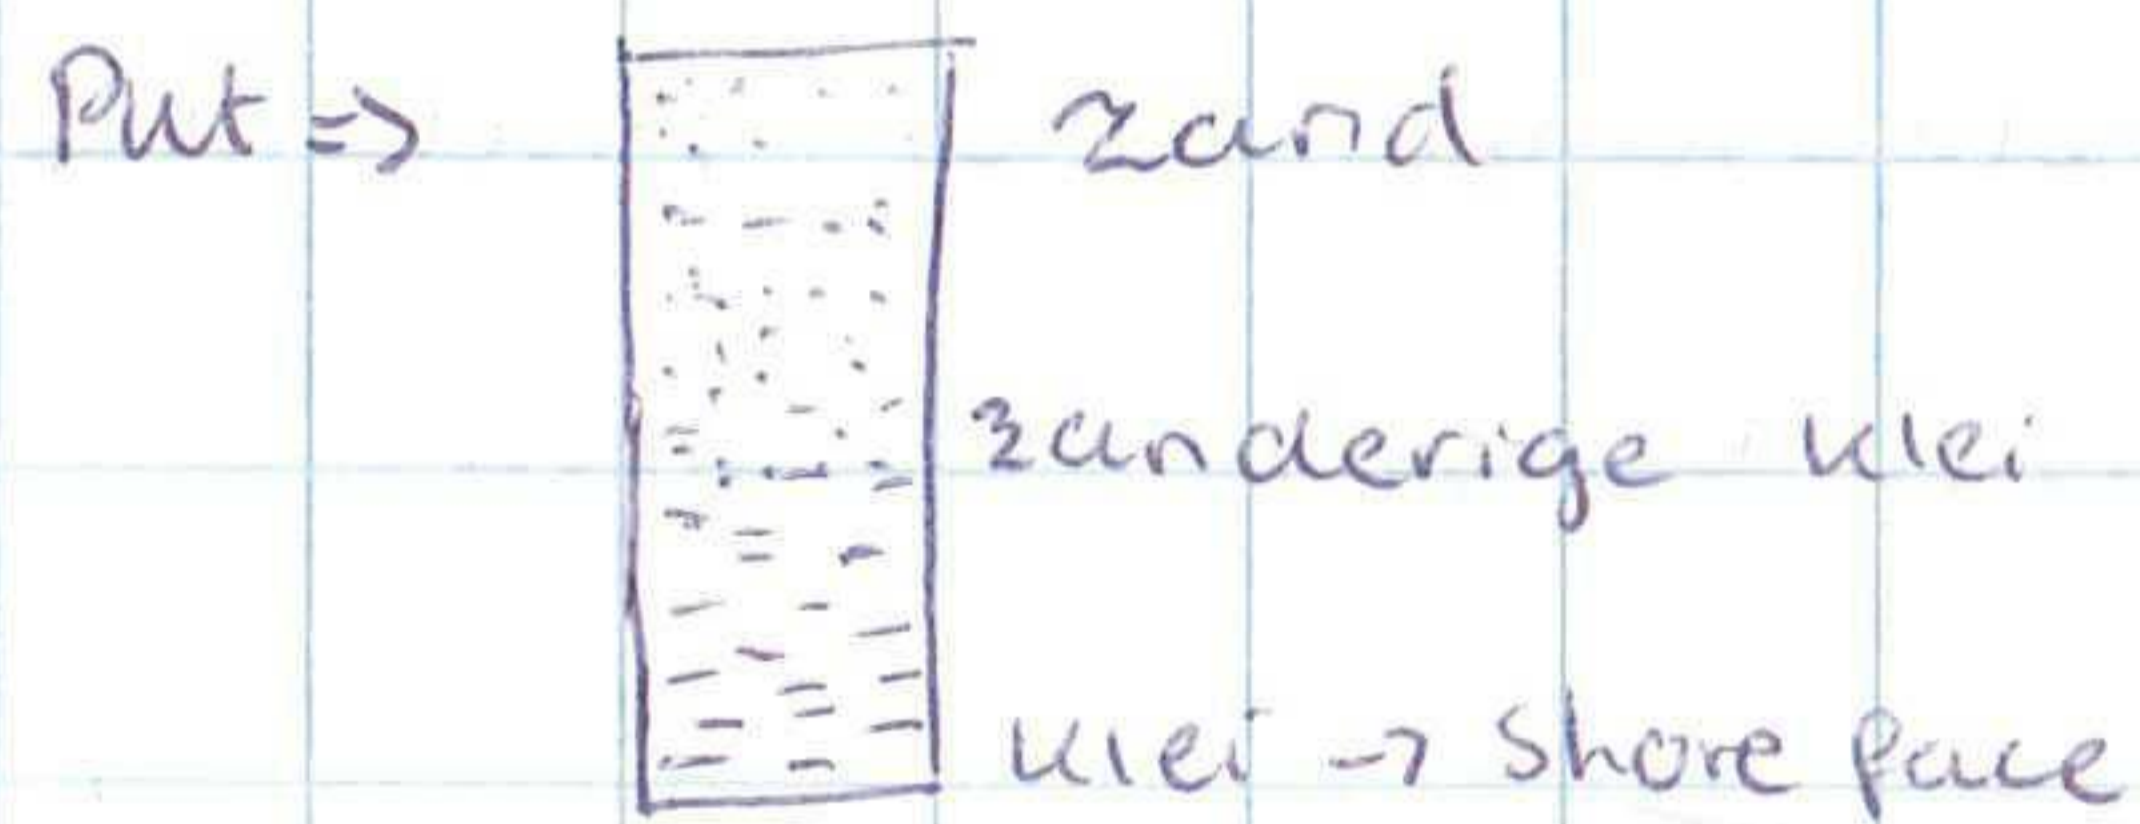 Put => zand
zanderige klei
klei -> Shore face